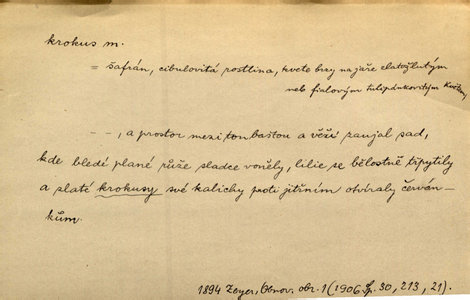 krokus m.
= šafrán, cibulovitá rostlina, kvete brzy na jaře zlatožlutým
neb fialovým tulipánkovitým květem,
– –, a prostor mezi tou baštou a věží zaujal sad,
kde bledé plané růže sladce voněly, lilie se bělostně třpytily
a zlaté krokusy své kalichy proti jitřním otvíraly červán-
kům.
1894 Zeyer, Obnov. obr. 1 (1906, 30, 213, 21).